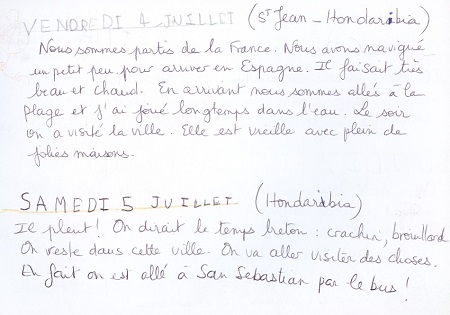 VENDREDI 4 JUILLET (St Jean - Hondaribia)
Nous sommes partis de la France. Nous avons navigué
un petit peu pour arriver en Espagne. Il faisait très
beau et chaud. En arrivant nous sommes allés à la
plage et j'ai joué longtemps dans l'eau. Le soir
on a visité la ville. Elle est vieille avec plein de
jolies maisons.
SAMEDI 5 JUILLET (Hondaribia)
Il pleut! On dirait le temps breton : crachin, brouillard
On reste dans cette ville. On va aller visiter des choses.
En fait on est allé à San Sebastian par le bus!